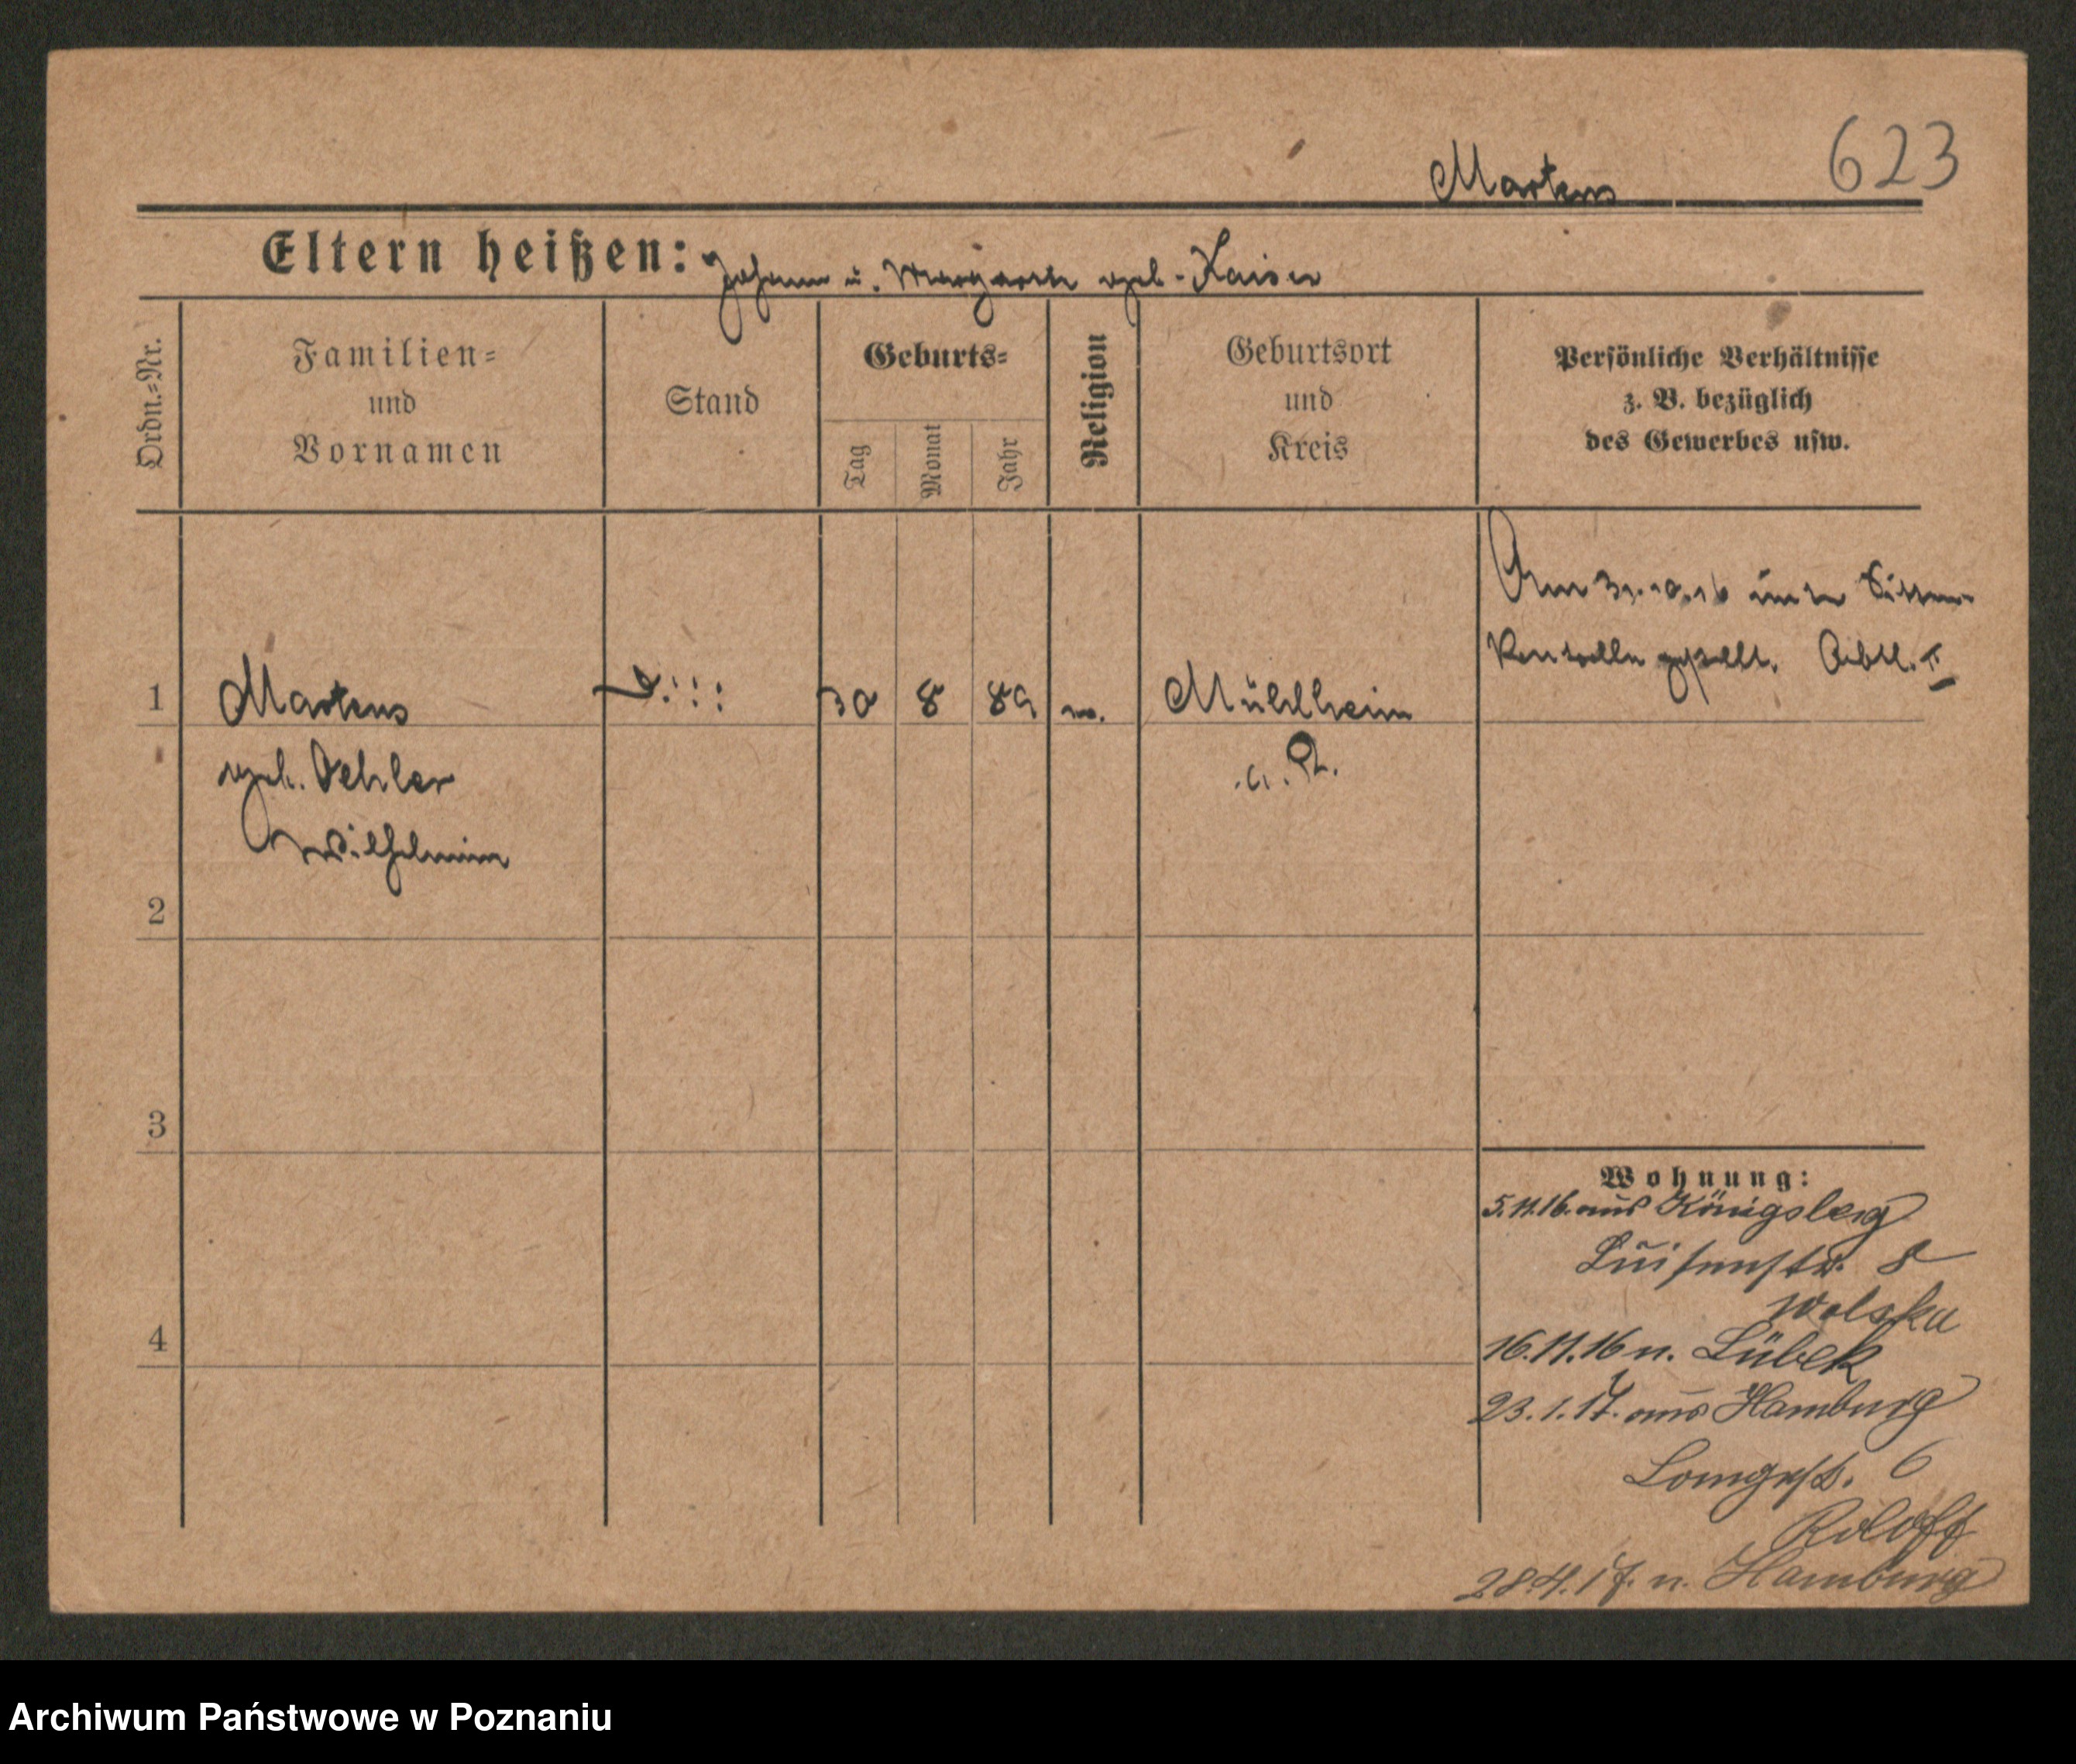 623
Martens
Eltern heißen: Johann u. Margarete geb. Kaiser
Ordn.=Nr.
Familien=
und
Vornamen
Stand
Geburts=
Tag
Monat
Jahr
Religion
Geburtsort
und
Kreis
Persönliche Verhältnisse
z. B. bezüglich
des Gewerbes usw.
Am 31.10.16 unter Sitten
Kontrolle gestellt. Abtl. II
1 Martens 30 8 89 Mühlheim
geb. Oehler a. R.
Wilhelmine
2
3
4
Wohnung:
5.11.16. aus Königsberg
Luisenstr. 8
Wolska
16.11.16 n. Lübek
23.1.17. aus Hamburg
6
Roloff
28.4.17. n. Hamburg
Archiwum Państwowe w Poznaniu